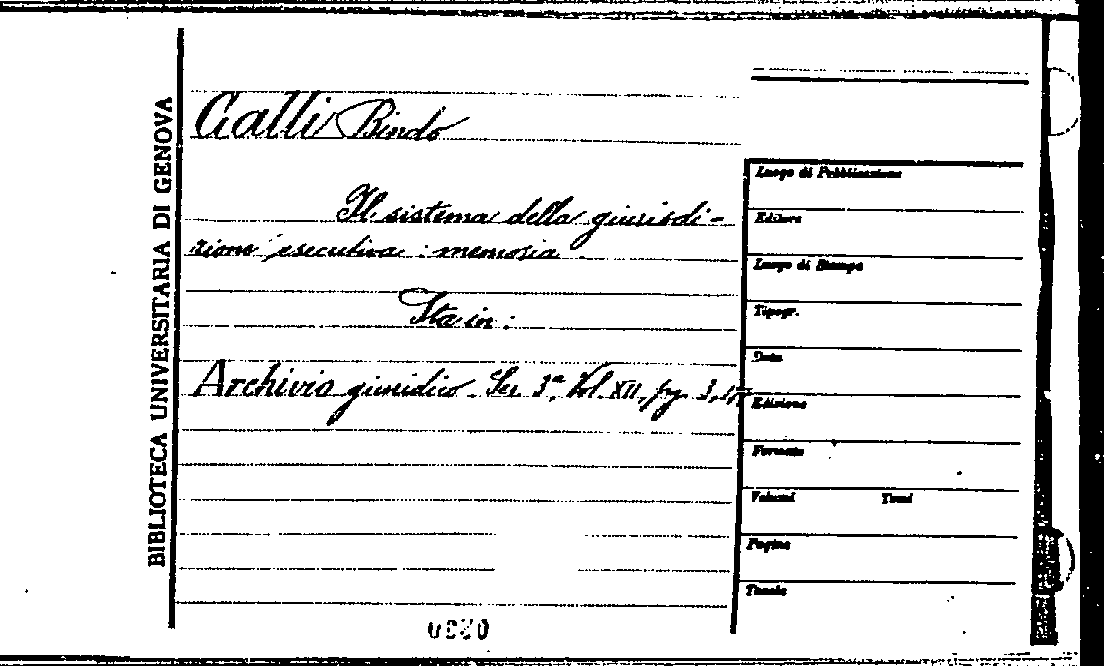 BIBLIOTECA UNIVERSITARIA DI GENOVA
Galli Bindo
Il sistema della giurisdi-
zione esecutiva: memoria.
Sta in:
Archivio giuridico. Ser 3ª, Vol. XII, pg. 3,
Luogo di Pubblicazione
Editore
Luogo di Stampa
Tipogr.
Data
Edizione
Formato
Volumi Tomi
Pagine
Tavole